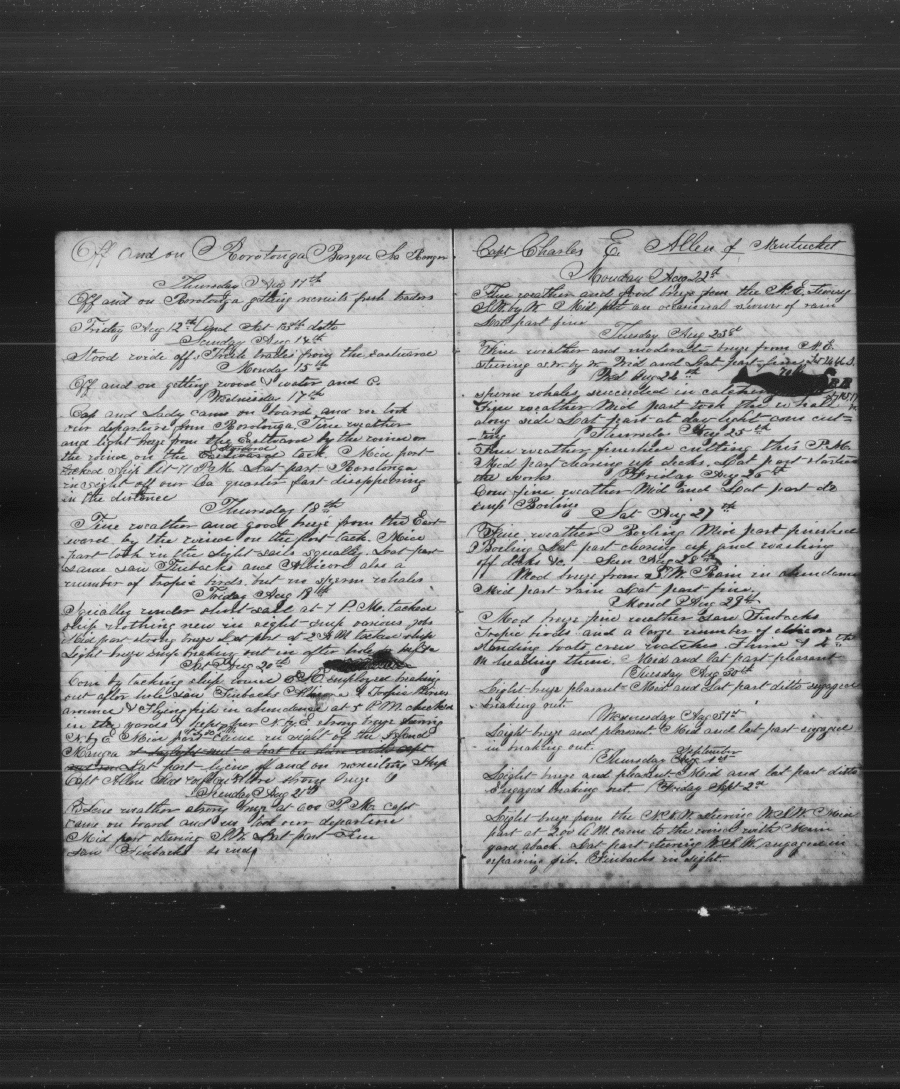 Off and on Rorotonga Barque Sea Ranger
Thursday Aug 11th
Off and on Rorotonga getting recruits fresh traders
Friday Aug 12th and Sat 13th ditto
Sunday Aug 14th
Stood wide off. Fresh trades from the eastward
Monday 15th
Off and on getting wood & water and C.
Wednesday 17th
Capt and Lady came on board and we took
our departure from Rorotonga. Fine weather
and light breze from the Eastward by the wind on
the wind on the Eastward tack. Mid part
tacked ship at 11 P.M. Last part Rorotonga
in sight off our quarter fast disappearing
in the distance
Thursday 18th
Fine weather and good breze from the East-
ward. by the wind on the port tack. Mid
part took in the light sails squally. Last part
same saw Finbacks and Albicore also a
number of tropic birds. but no sperm whales
Friday Aug 19th
Squally under short sail at 7 P.M. tacked
ship nothing new in sight. ship various jobs
Mid part strong breze Last part at 2 A.M tacked ship
Light breze ship breaking out in after hole
Sat Aug 20th
Com by tacking ship employed breaking
out after hole saw Finbacks Albicore & Tropic Birds
around & Flying fish in abundence at 5 P.M.
in the goods & N by E strong breze stering
N by E Mid part came in sight of the Island
Mangia
Last part lying of and on
Capt Allen strong breze
Sunday Aug 21st
Fine weather strong breze at 6 00 P.M. Capt
came on board and we took our departure
Mid part stering S.W. Last part Fine
saw Finbacks
Capt Charles E. Allen of Nantucket
Monday Aug 22nd
Fine weather and good breze from the N.E. stering
S.W. by W. Mid part an occasional shower of rain
Last part fine
Tuesday Aug 23rd
Fine weather and moderate breze from N.E.
stering s.w. by w. Mid and Last part fine
Wed Aug 24th
sperm whales succeeded in catching
Fine weather Mid part took the whale
along side Last part at day light coms cutt-
ing Thursday Aug 25th
Fine weather finished cutting this P.M.
Mid part clearing up decks. Last part started
the works Friday Aug 26th
Com fine weather Mid and Last part do
emp Boiling
Sat Aug 27th
Fine weather Boiling Mid part finished
Boiling Last part clearing up and washing
off decks &c. Sun Aug 28th
Mod breze from S.W. Rain in abundance
Mid part rain Last part fine.
Mond Aug 29th
Mod breze fine weather saw Finbacks
Tropic birds and a large number of
standing boats crew watches.
heading them. Mid and last part pleasant
Tuesday Aug 30th
Light breze pleasant Mid and Last part ditto engaged
breaking out.
Wednesday Aug 31st
Light breze and pleasant Mid and last part engaged
in breaking out.
September
Thursday 1st
Light breze and pleasant Mid and last part ditto
engaged breaking out. Friday Sept 2nd
Light breze from the stering W.S.W. Mid
part at 2.00 A.M. came to the wind with Main
yard aback. Last part stering W.S.W. engaged in
repairing jib. Finbacks in sight